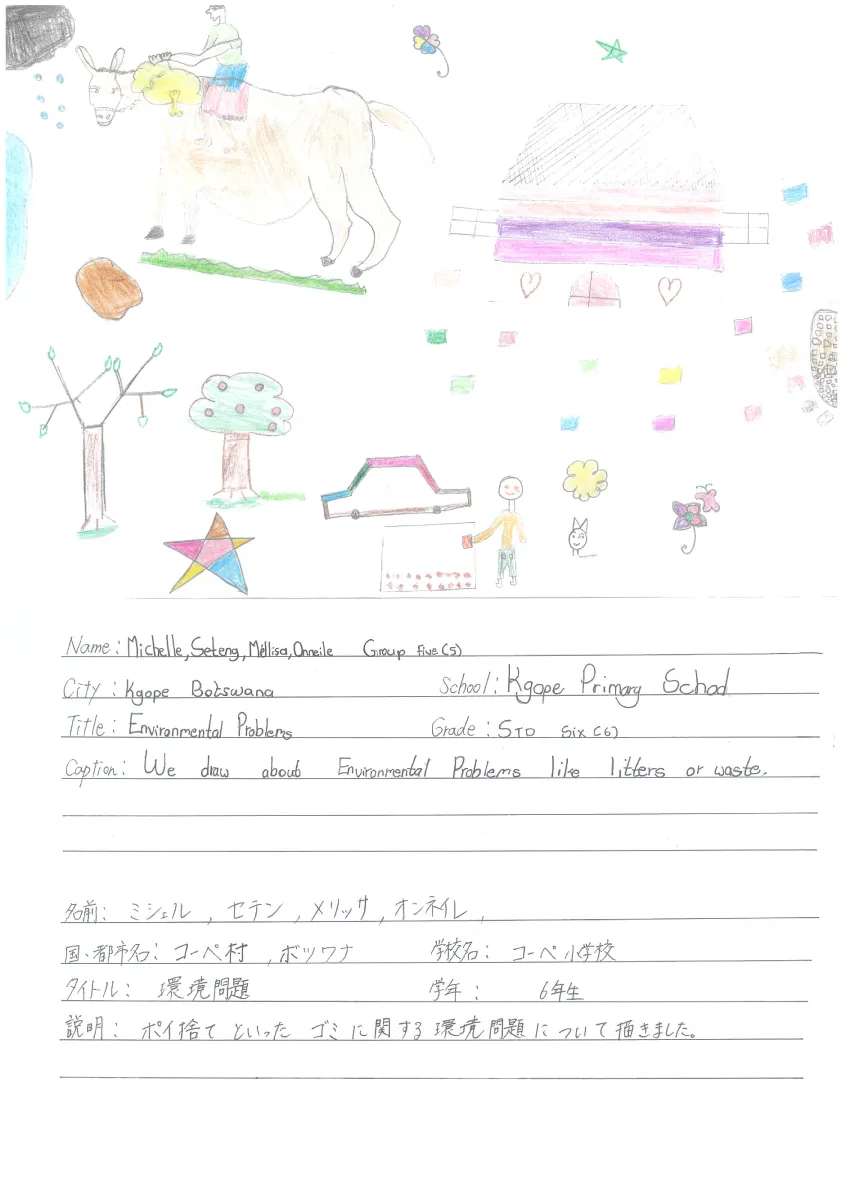 Name: Michelle, Seteng, Mellisa, Onneile Group Five (5)
City: Kgope Botswana School: Kgope Primary School
Title: Environmental Problems Grade: STD Six (6)
Caption: We draw about Environmental Problems like litters or waste.
名前: ミシェル, セテン, メリッサ, オンネイレ,
国、都市名: コーペ村, ボツワナ 学校名: コーペ小学校
タイトル: 環境問題 学年: 6年生
説明: ポイ捨て といった ゴミに関する環境問題について描きました。